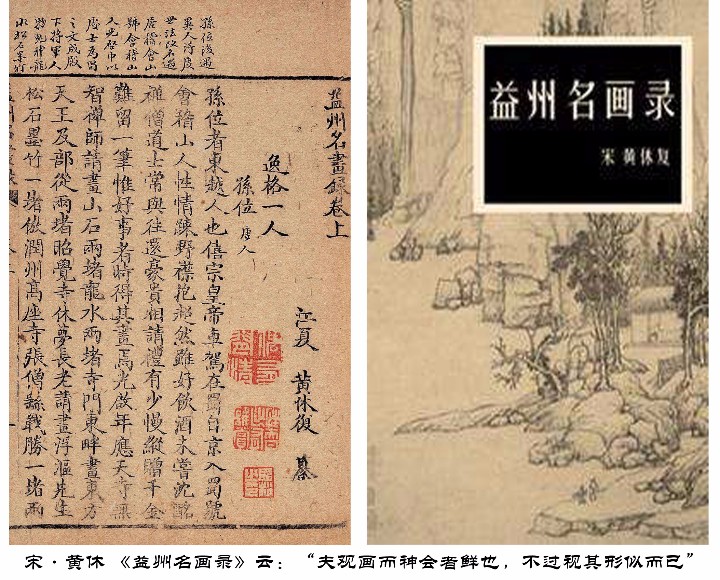 孫位後遇
異人得度
世法改名遇
號會稽山
處士為蜀
之文成殿
下將軍人
物鬼神龍
水松石墨竹
益州名畫錄卷上
江夏 黃休復 纂
逸格一人
孫位 唐人
孫位者東越人也僖宗皇帝車駕在蜀自京入蜀號
會稽山人性情疎野襟抱超然雖好飲酒未嘗沈酩
禪僧道士常與往還豪貴相請禮有少慢縱贈千金
難留一筆惟好事者時得其畫焉光啟年應天寺無
智禪師請畫山石兩堵龍水兩堵寺門東畔畫東方
天王及部從兩堵昭覺寺休夢長老請畫浮漚先生
松石墨竹一堵倣潤州高座寺張僧繇戰勝一堵兩
益州名画录
宋 黄休复
宋·黄休《益州名画录》云：“夫观画而神会者鲜也，不过视其形似而已”